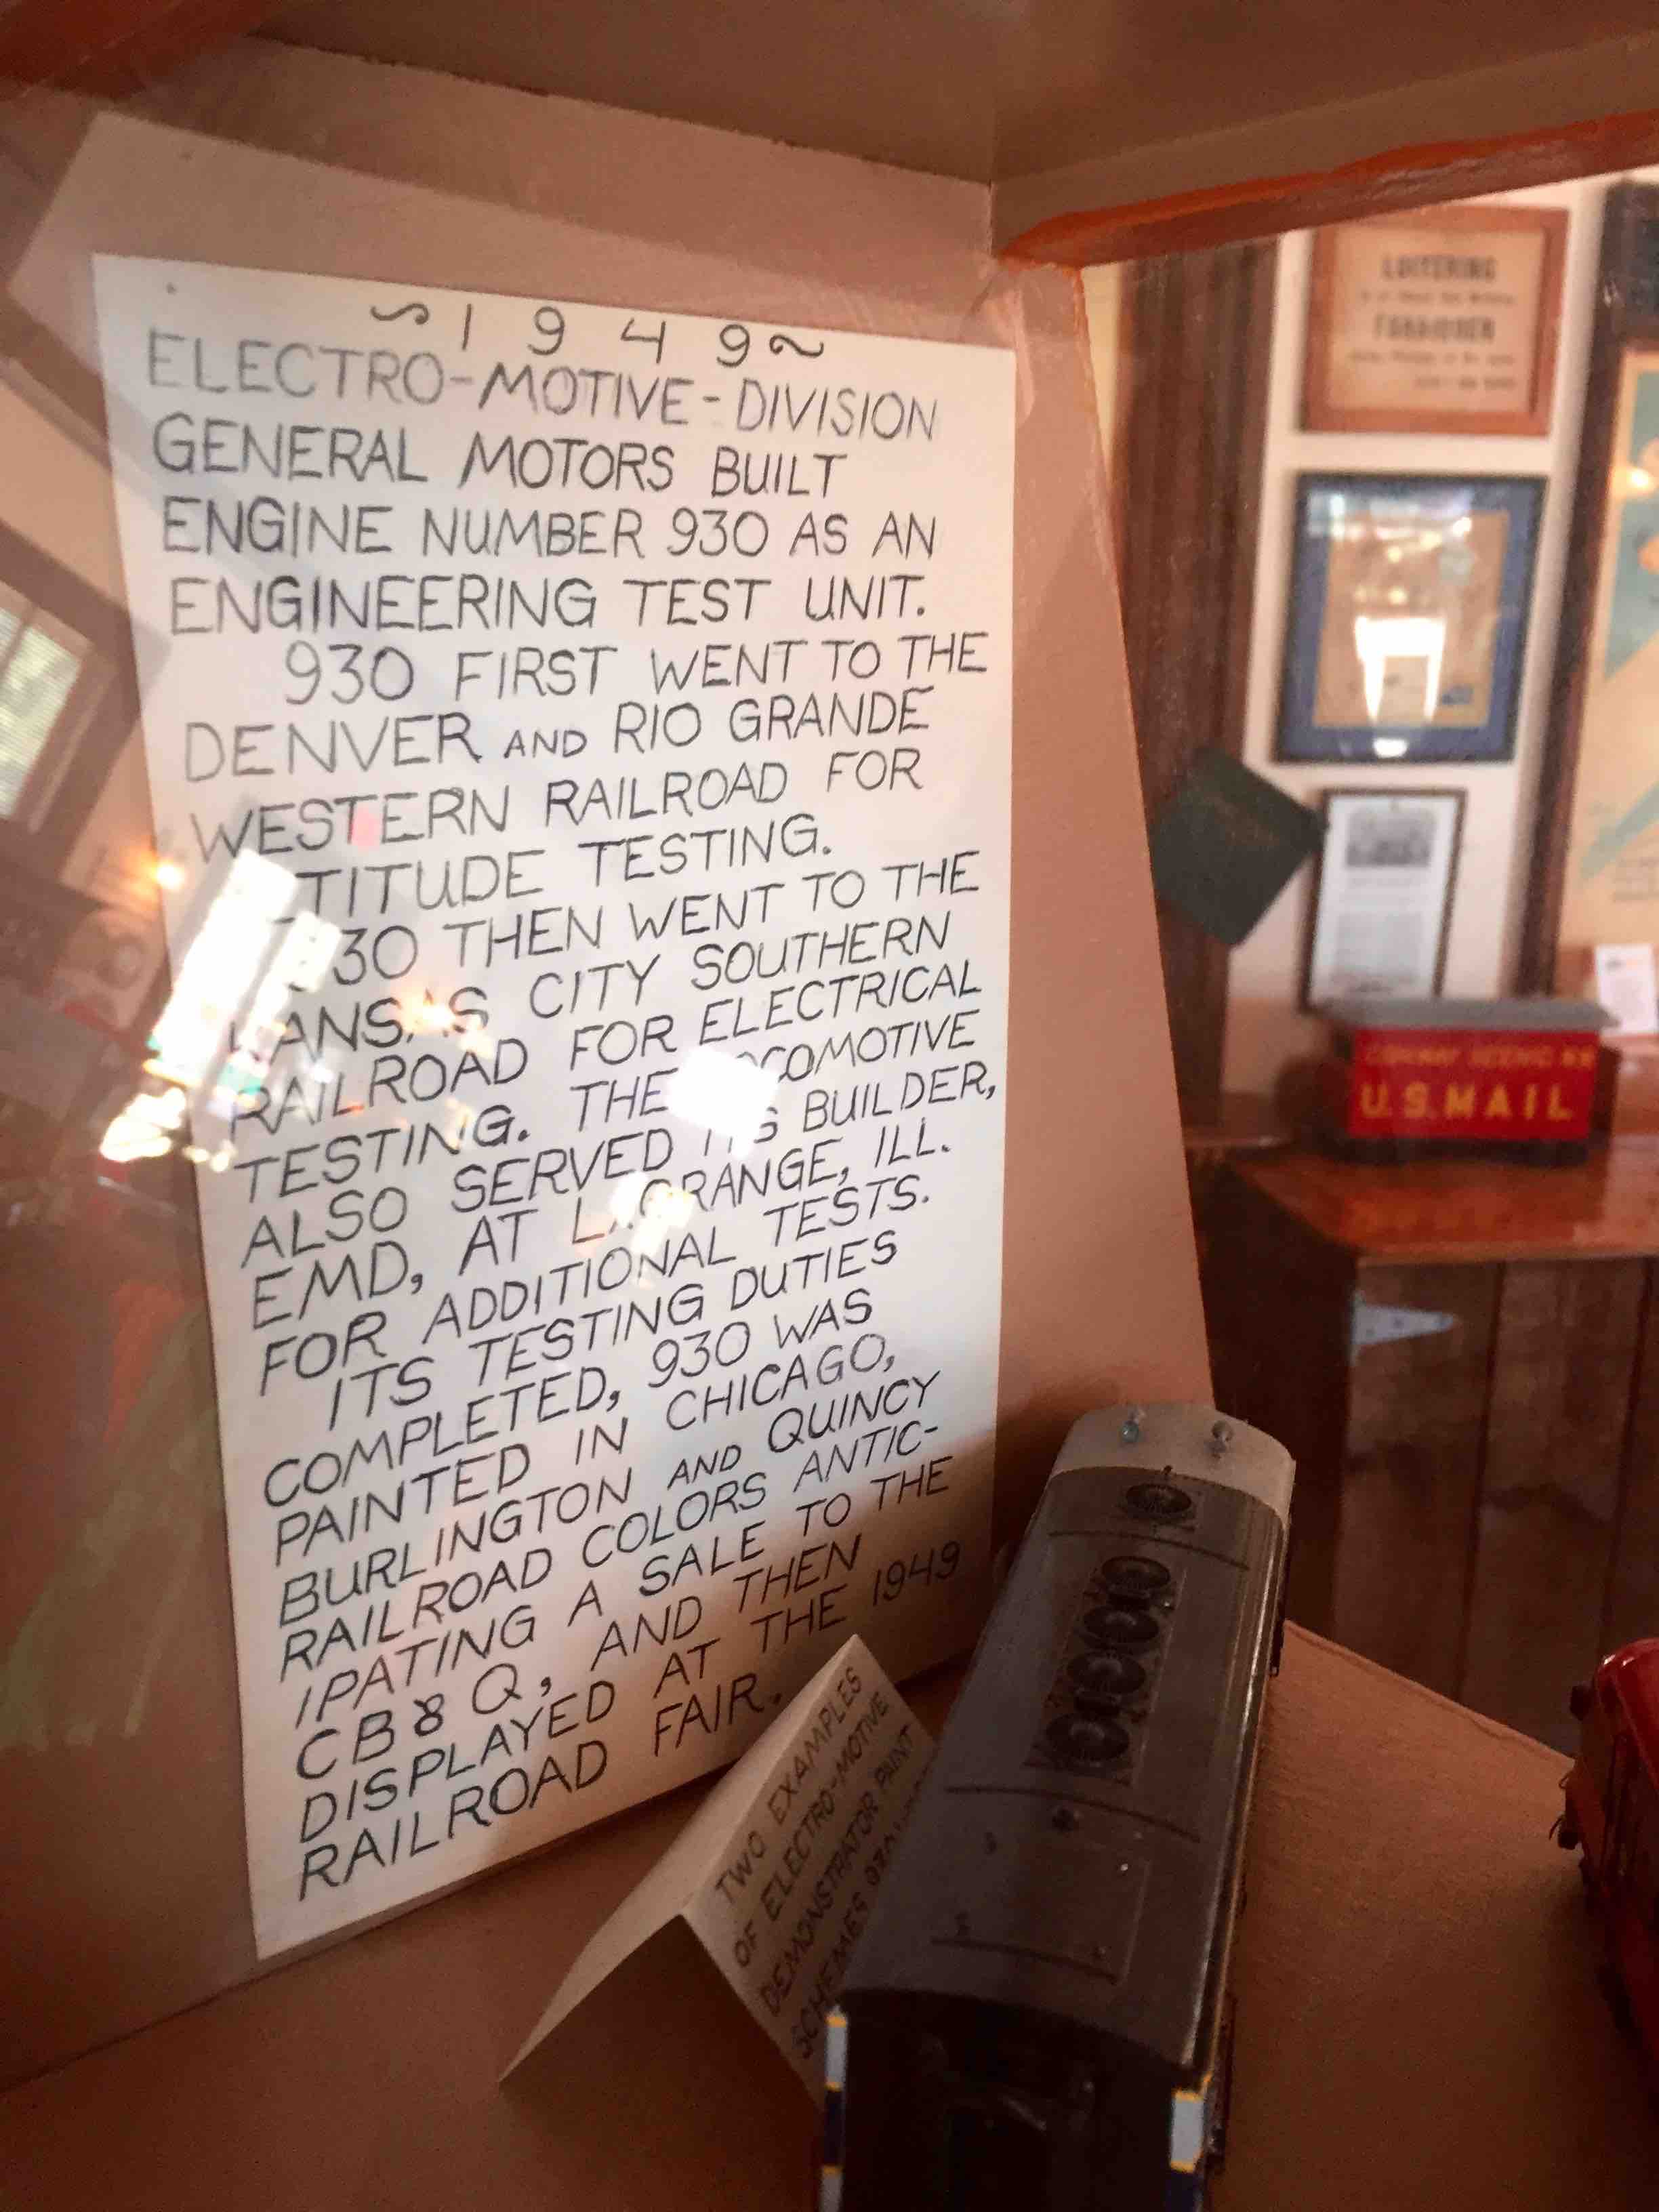 ~1949~
ELECTRO-MOTIVE-DIVISION
GENERAL MOTORS BUILT
ENGINE NUMBER 930 AS AN
ENGINEERING TEST UNIT.
930 FIRST WENT TO THE
DENVER AND RIO GRANDE
WESTERN RAILROAD FOR
TITUDE TESTING.
30 THEN WENT TO THE
KANSAS CITY SOUTHERN
RAILROAD FOR ELECTRICAL
TESTING. THE LOCOMOTIVE
ALSO SERVED ITS BUILDER,
EMD, AT LAGRANGE, ILL.
FOR ADDITIONAL TESTS.
ITS TESTING DUTIES
COMPLETED, 930 WAS
PAINTED IN CHICAGO,
BURLINGTON AND QUINCY
RAILROAD COLORS ANTIC-
IPATING A SALE TO THE
CB&Q, AND THEN
DISPLAYED AT THE 1949
RAILROAD FAIR.
TWO EXAMPLES
OF ELECTRO-MOTIVE
DEMONSTRATOR PAINT
SCHEMES
LOITERING
FORBIDDEN
U.S.MAIL